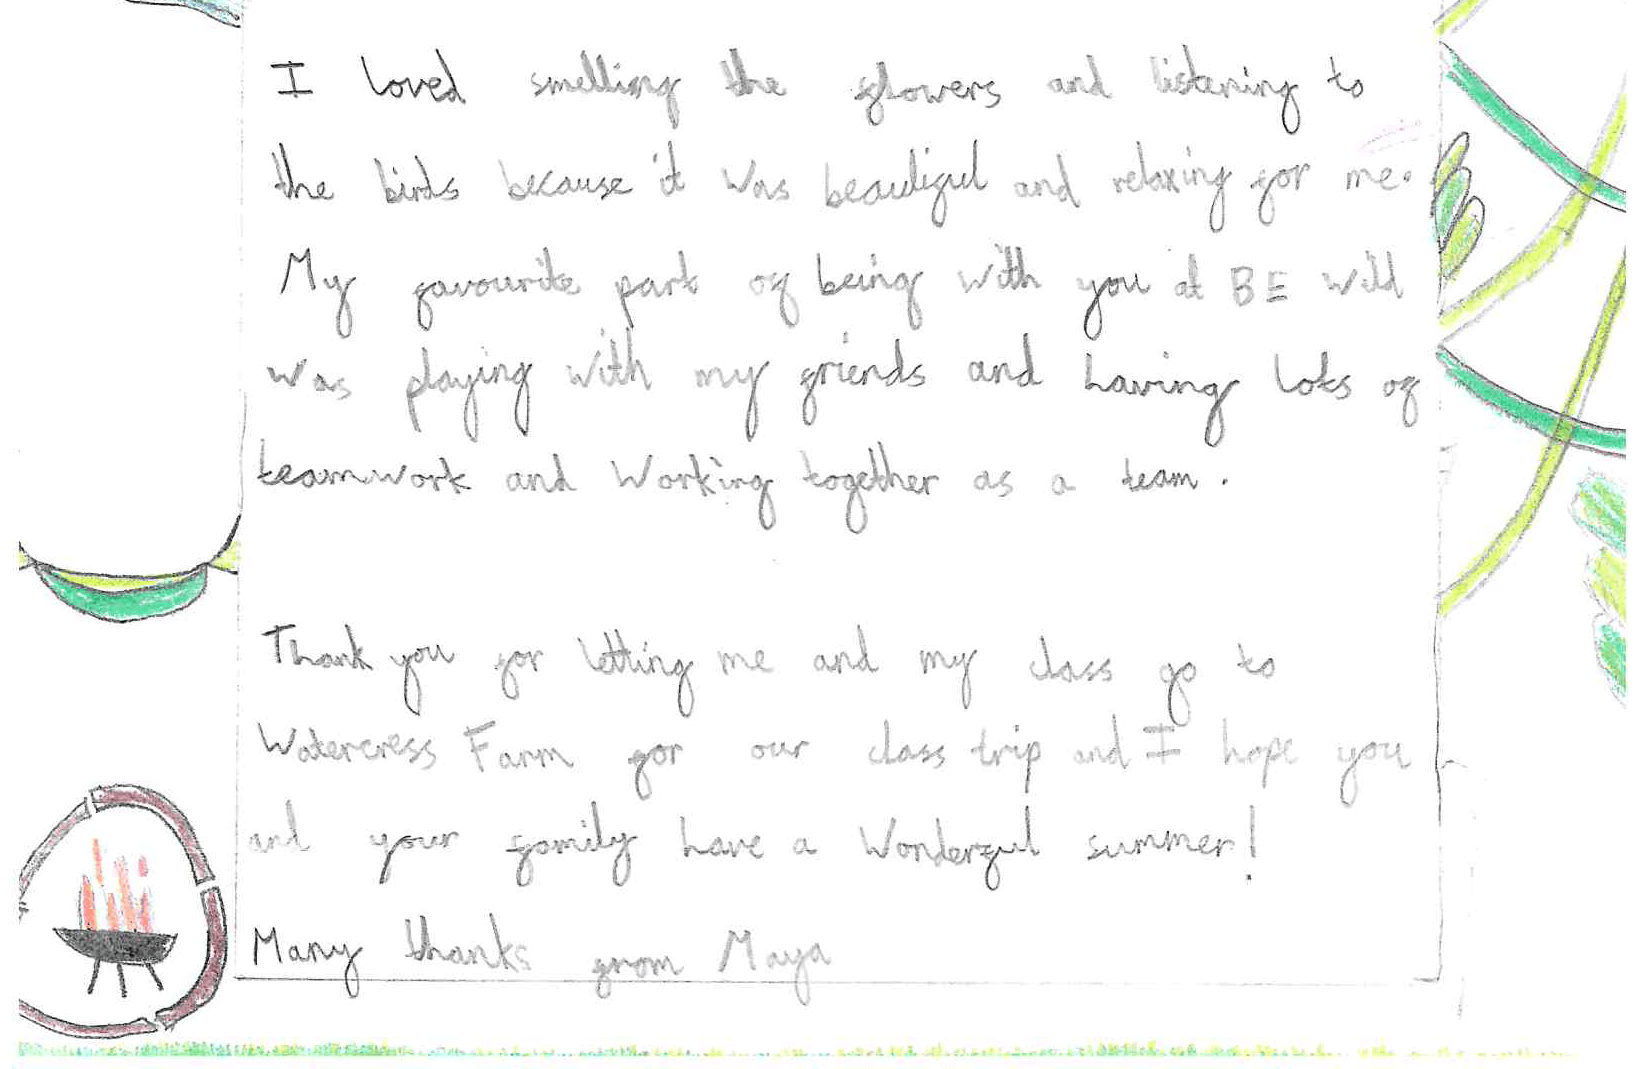 I loved smelling the flowers and listening to
the birds because it was beautiful and relaxing for me.
My favourite part of being with you at BE wild
was playing with my friends and having lots of
teamwork and working together as a team.
Thank you for letting me and my class go to
Watercress Farm for our class trip and I hope you
and your family have a wonderful summer!
Many thanks from Maya